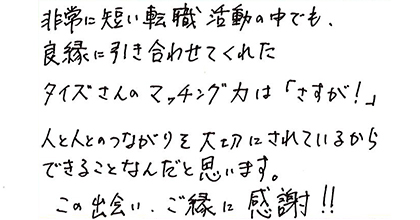 非常に短い転職活動の中でも、
良縁に引き合わせてくれた
タイズさんのマッチング力は「さすが!」
人と人とのつながりを大切にされているから
できることなんだと思います。
この出会い、ご縁に感謝!!